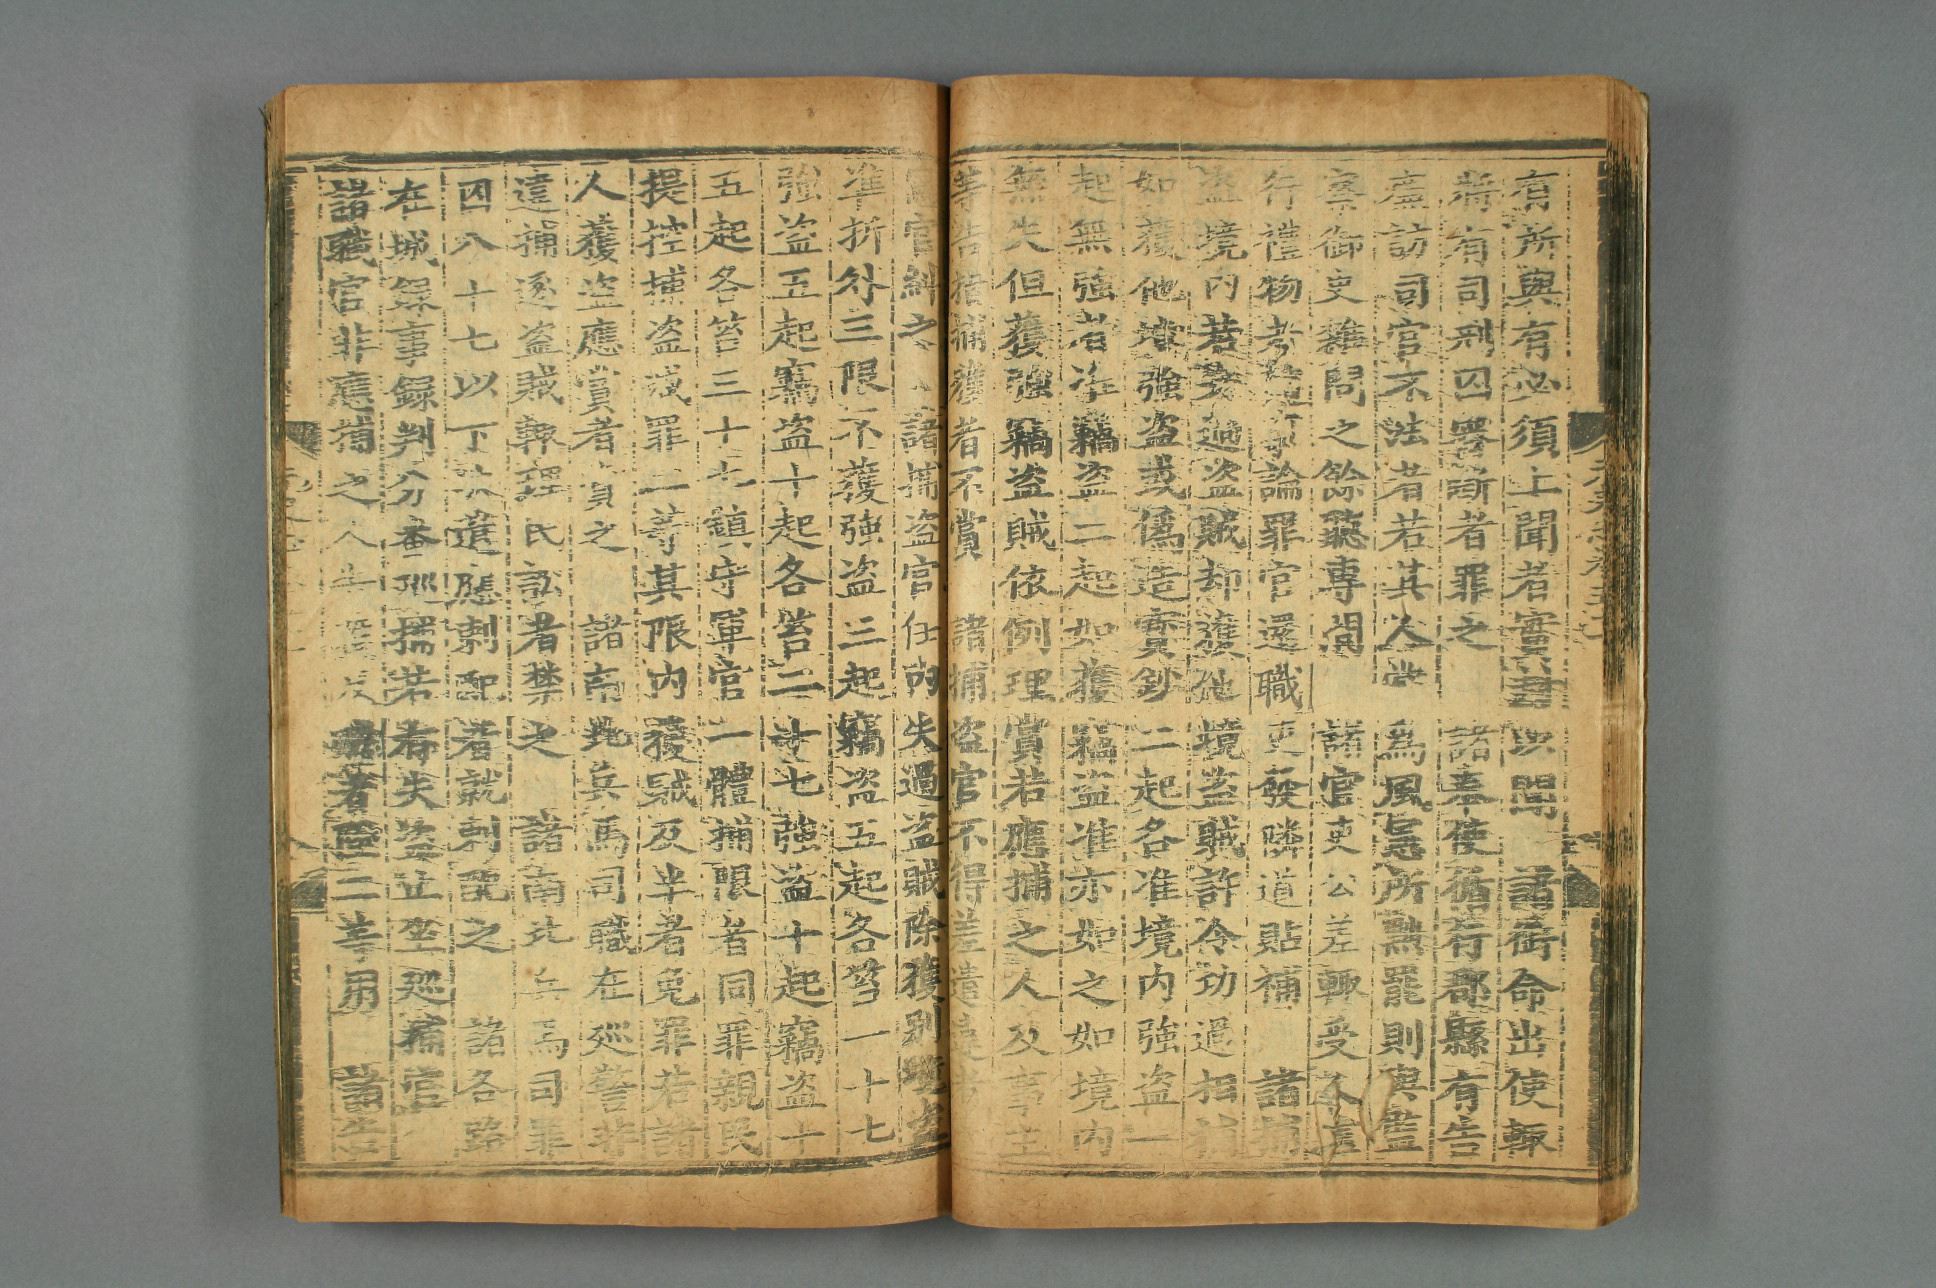 有所與有必須上聞者實封以聞　諸銜命出使輒
有司刑囚界斷者罪之　諸奉使循行郡縣有告
廉訪司官不法者若其人嘗爲風憲所黜罷則與監
察御史雜問之餘聽專問　諸官吏公差輒受人
行禮物者　論罪官還職吏發隣道貼補　諸捕
盜境內若　過盜賊却獲他境盜賊許令功過相補
如獲他境強盜或僞造寳鈔二起各准境內強盜一
起無強者准竊盜二起如獲竊盜准亦如之如境內
無失但獲強竊盜賊依例理賞若應捕之人及事主
等告指捕獲者不賞　諸捕盜官不得差遣違者
官糾之　諸捕盜官任內失過盜賊除獲別境盜
准折外三限不獲強盜三起竊盜五起各笞一十七
強盜五起竊盜十起各笞二十七強盜十起竊盜十
五起各笞三十七鎮守軍官一體捕限者同罪親民
提控捕盜減罪二等其限內獲賊及半者免罪若諸
人獲盜應賞者賞之　諸南北兵馬司職在巡警非
違捕逐盜賊輒理民訟者禁之　諸南北兵馬司罪
囚八十七以下決遣應刺配者就刺配之　諸各路
在城錄事錄判分番巡捕若有失盜止坐巡捕官
諸職官非應捕之人　　　者　三等用　諸告